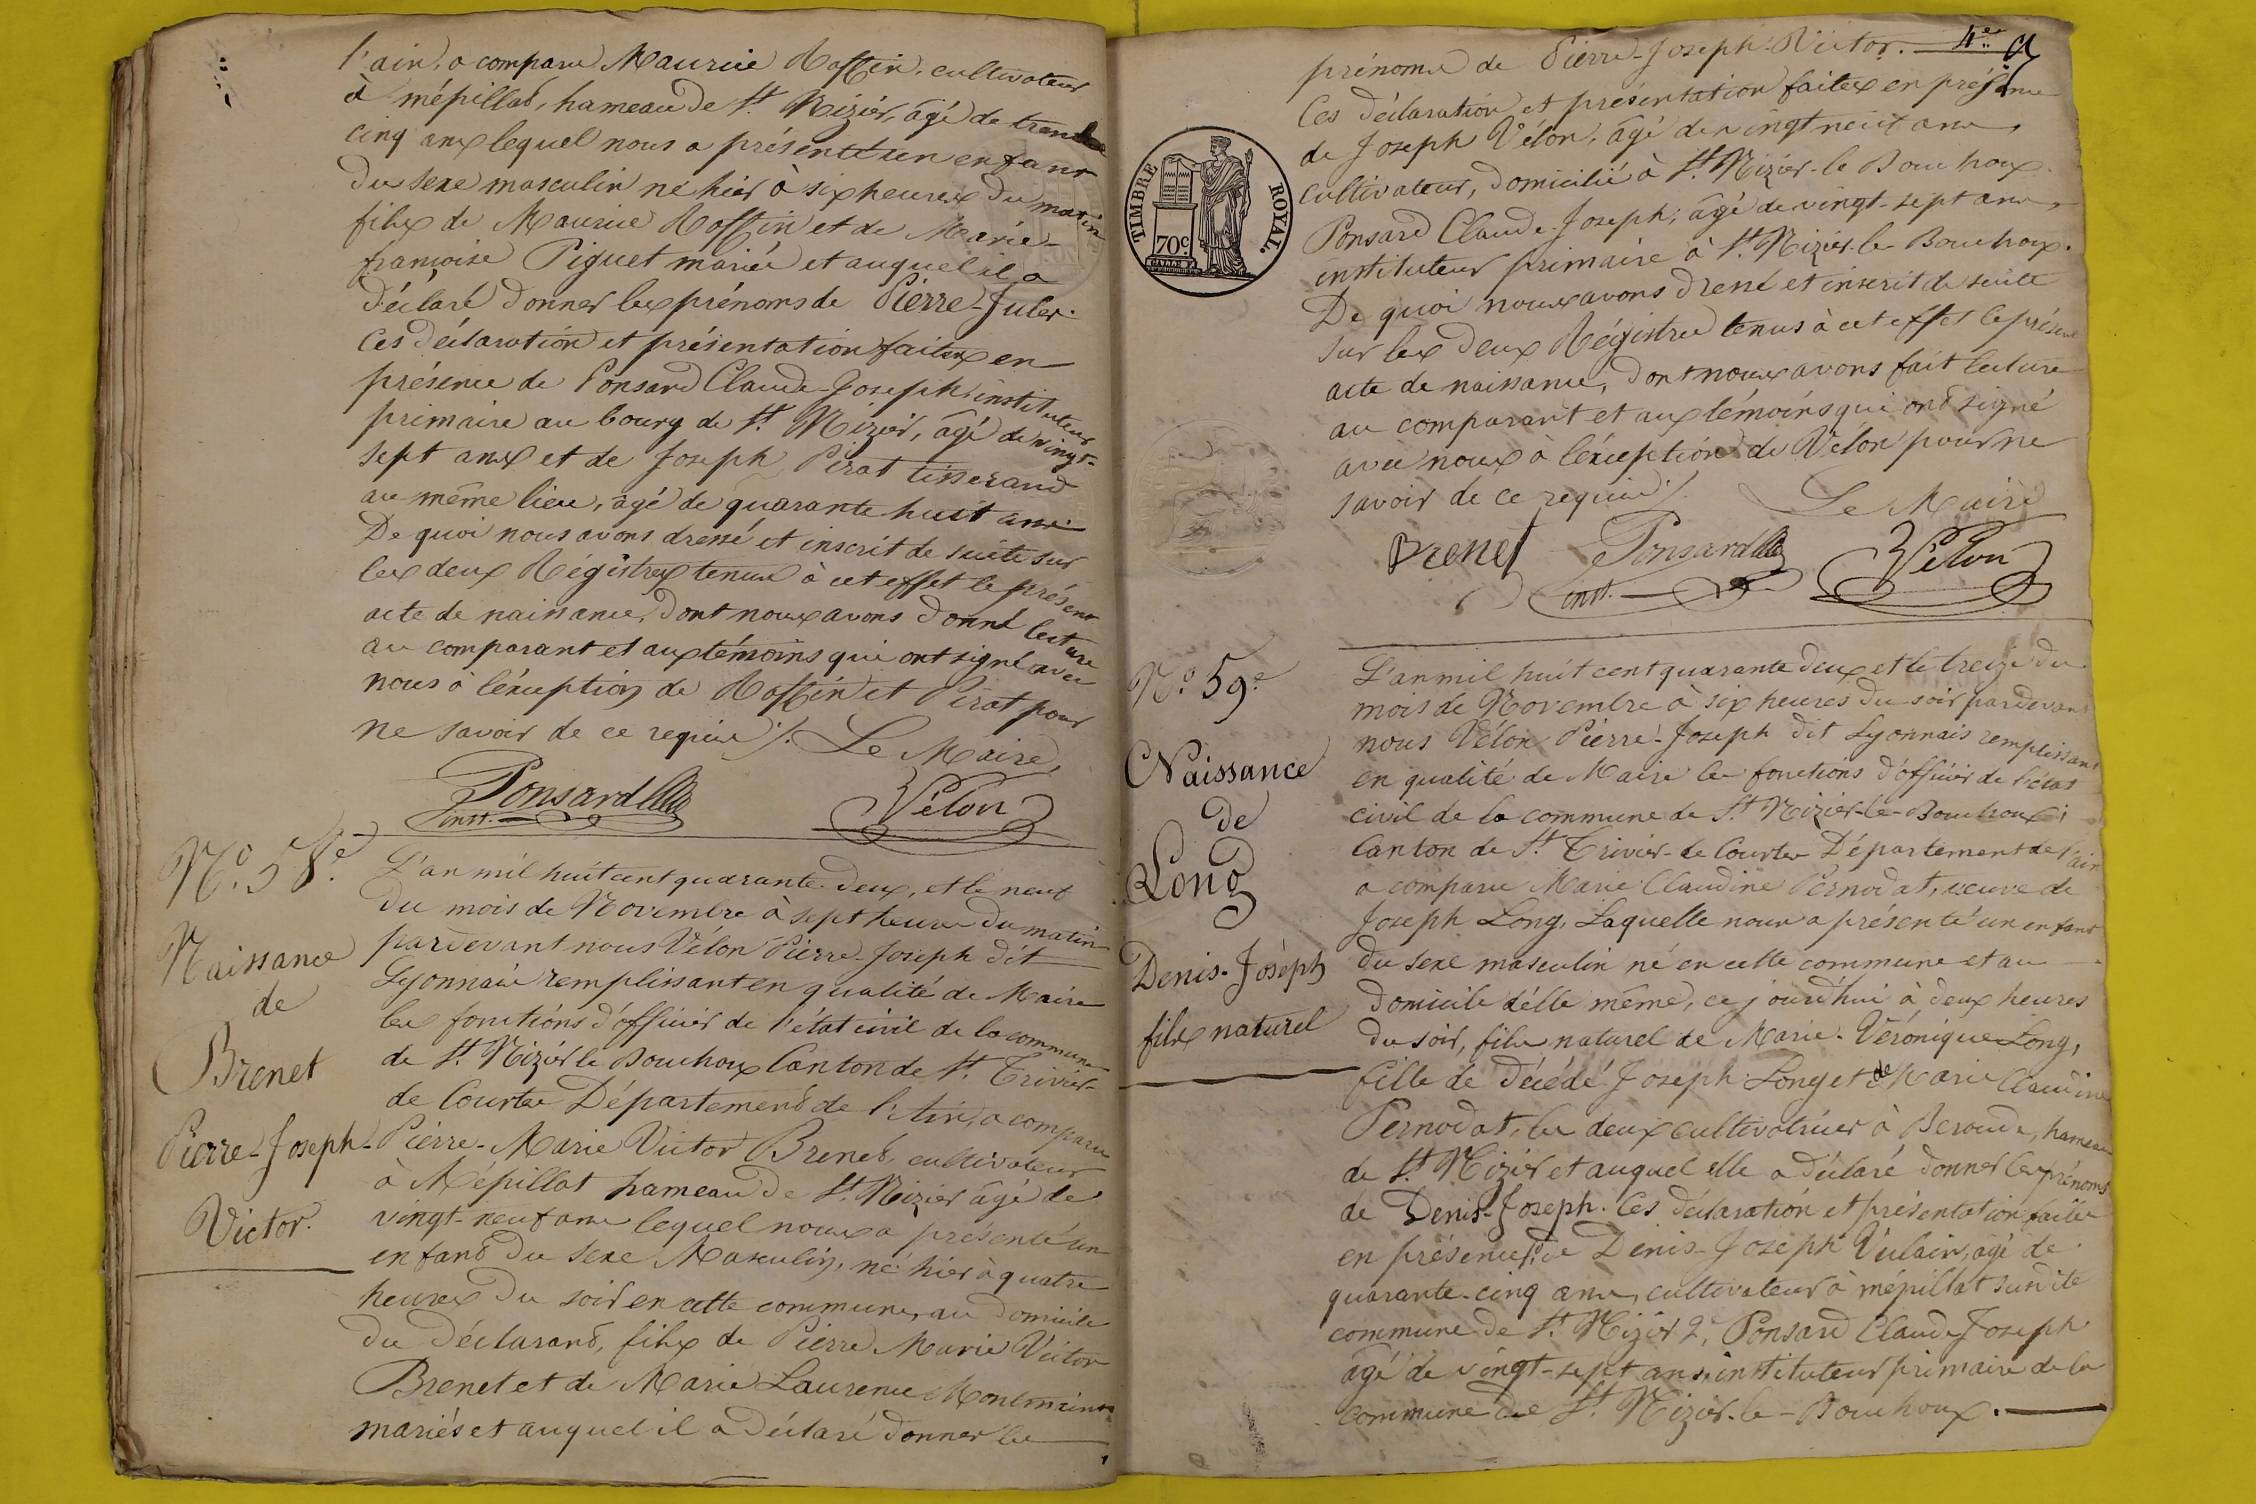 l'ain, a comparu Maurice Roffin, cultivateur
à mépillat, hameau de St. Nizier, âgé de trente
cinq ans lequel nous a présenté un enfant
du sexe masculin né hier à six heures du matin
fils de Maurice Roffin et de Marie-
françoise Piguet mariés et auquel il a
déclaré donner les prénoms de Pierre-Jules.
Ces déclaration et présentation faites en
présence de Ponsard Claude-Joseph, instituteur
primaire au bourg de St. Nizier, âgé de vingt-
sept ans et de Joseph Pirat tisserand
au même lieu, âgé de quarante huit ans.
De quoi nous avons dressé et inscrit de suite sur
les deux Régistres tenus à cet effet le présent
acte de naissance, dont nous avons donné lecture
au comparant et aux témoins qui ont signé avec
nous à l'éxception de Roffin et Pirat pour
ne savoir de ce requis ./. Le Maire,
Ponsard
inst.
Vélon
No. 58e.
Naissance
de
Brenet
Pierre-Joseph-
Victor.
L'an mil huit cent quarante-deux, et le neuf
du mois de Novembre à sept heures du matin
pardevant nous Vélon Pierre-Joseph dit
Lyonnais remplissant en qualité de Maire
les fonctions d'officier de l'état civil de la commune
de St. Nizier le Bouchoux Canton de St. Trivier-
de Courtes Département de l'Ain, a comparu
Pierre-Marie Victor Brenet, cultivateur
à Mépillat hameau de St. Nizier âgé de
vingt-neuf ans lequel nous a présenté un
enfant du sexe Masculin, né hier à quatre
heures du soir en cette commune, au domicile
du déclarant, fils de Pierre Marie Victor
Brenet et de Marie Laurence Montmain
mariés et auquel il a déclaré donner les
prénoms de Pierre-Joseph-Victor. 4e.
Ces déclaration et présentation faites en présence
de Joseph Vélon, âgé de vingt neuf ans,
cultivateur, domicilié à St. Nizier-le Bouchoux.
Ponsard Claude-Joseph, âgé de vingt-sept ans,
instituteur primaire à St. Nizier-le-Bouchoux.
De quoi nous avons dressé et inscrit de suite
sur les deux Régistres tenus à cet effet le présent
acte de naissance, dont nous avons fait lecture
au comparant et aux témoins qui ont signé
avec nous à l'éxception de Vélon pour ne
savoir de ce requis ./. Le Maire
Brenet Ponsard Vélon
inst.
TIMBRE ROYAL.
70c.
No. 59e
Naissance
de
Long
Denis-Joseph
fils naturel
L'an mil huit cent quarante deux et le treize du
mois de Novembre à six heures du soir pardevant
nous Vélon Pierre-Joseph dit Lyonnais remplissant
en qualité de Maire les fonctions d'officier de l'état
civil de la commune de St. Nizier-le-Bouchoux,
Canton de St. Trivier-de Courtes Département de l'ain
a comparu Marie Claudine Pernodat, veuve de
Joseph Long, Laquelle nous a présenté un enfant
du sexe masculin né en cette commune et au
domicile d'elle même, ce jourd'hui à deux heures
du soir, fils naturel de Marie-Véronique Long,
fille de décédé Joseph Long et de Marie Claudine
Pernodat, les deux cultivatrices à Beroude, hameau
de St. Nizier et auquel elle a déclaré donner les prénoms
de Denis-Joseph. Ces déclaration et présentation faites
en présence, de Denis-Joseph Vulain, âgé de
quarante-cinq ans, cultivateur à mépillat susdite
commune de St. Nizier 2e, Ponsard Claude Joseph
âgé de vingt-sept ans, instituteur primaire de la
commune de St. Nizier-le-Bouchoux.